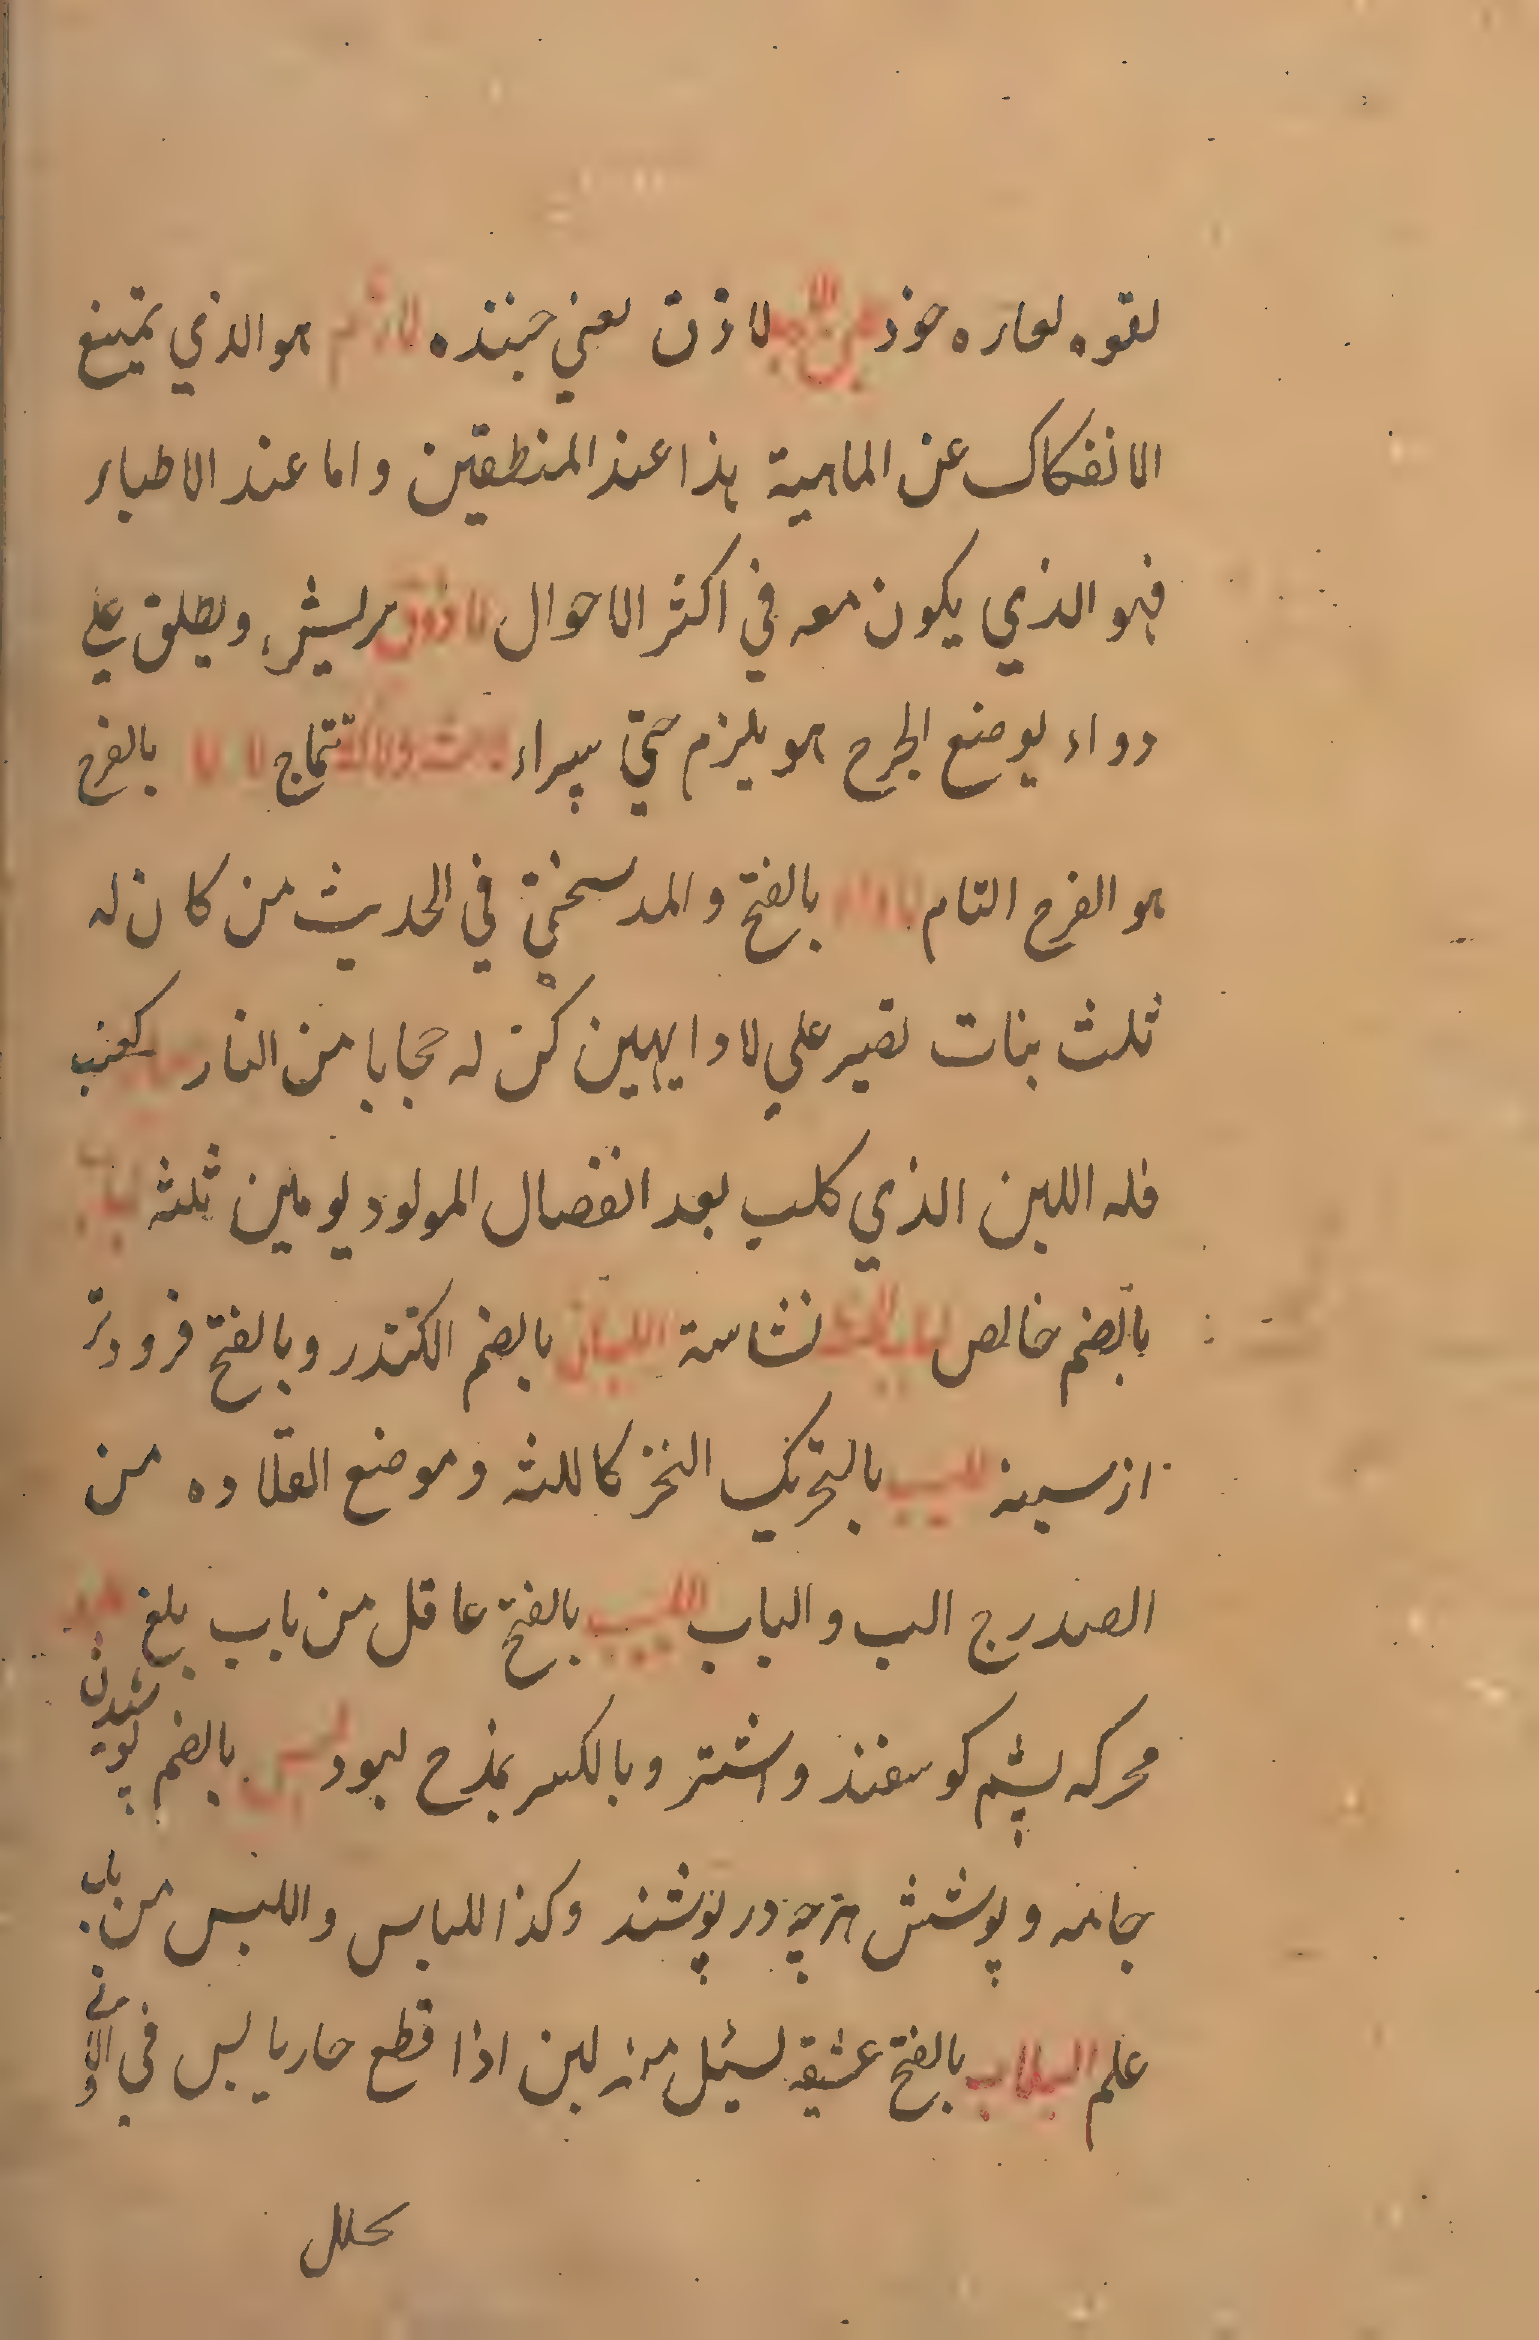 لقوه لعاره خود لاذن یعنی جبنده لازم هو الذي یمتنع
الانفکاک عن الماهیة هذا عند المنطقین واما عند الاطباء
فهو الذي یکون معه في اکثر الاحوال لاذوق سریش ویطلق علي
دواء یوضع الجرح هو یلزم حتي یبراء تتماج لالا بالفرح
هو الفرح التام لاواء بالفتح والمد سختي في الحدیث من کان له
ثلث بنات تصیر علي لاوایهین کن له حجابا من النار کعنب
فله اللبن الذي کلب بعد انفصال المولود یومین ثلثه لباب
بالضم خالص نشاسة اللبان بالضم الکندر وبالفتح فرودتر
از سینه للبب بالتحریک النخر کاللثه وموضع القلاده من
الصدر ج البب والباب اللبیب بالفتح عاقل من باب بلغ لبد
محرکه پشم کوسفند واشتر وبالکسر نمذج لبود لبس بالضم پوشیدن
جامه وپوشش هرچه در پوشند وکذا اللباس واللبس من باب
علم البلاب بالفتح عشیقه لسیل منه لبن اذا قطع حار یابس في الاولي
محلل